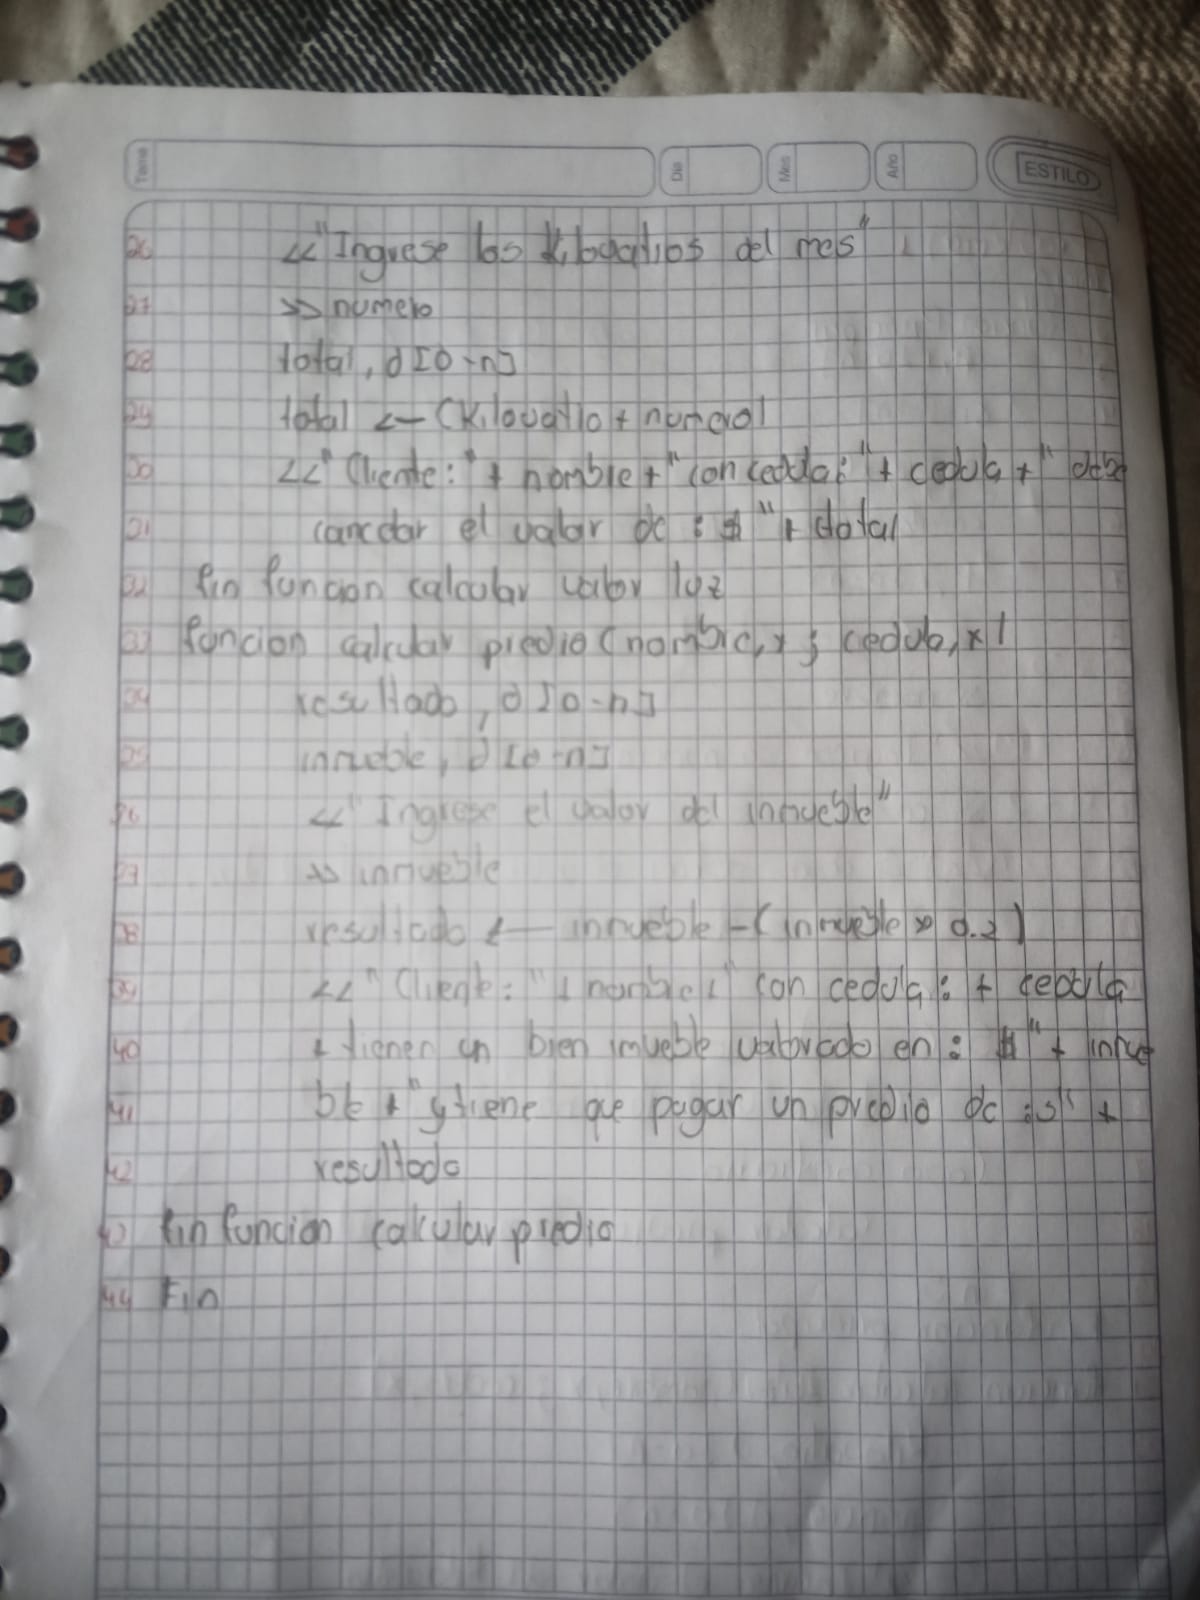 Tema Dia Mes Año ESTILO
26 << "Ingrese los kilovatios del mes"
27 >> numero
28 total, d [0-n]
29 total <- (Kilovatio + numero)
30 << "Cliente:" + nombre + "con cedula:" + cedula + " debe
31 cancelar el valor de : $ " + total
32 fin funcion calcular valor luz
33 funcion calcular predio (nombre, x ; cedula, x)
34 resultado, d [0-n]
35 inmueble, d [0-n]
36 << " Ingrese el valor del inmueble"
37 >> inmueble
38 resultado <- inmueble - (inmueble * 0.2)
39 << "Cliente: " + nombre + " con cedula: + cedula
40 + tienen un bien imueble valorado en : $ " + inmue
41 ble + " y tiene que pagar un predio de :$" +
42 resultado
43 fin funcion calcular predio
44 Fin